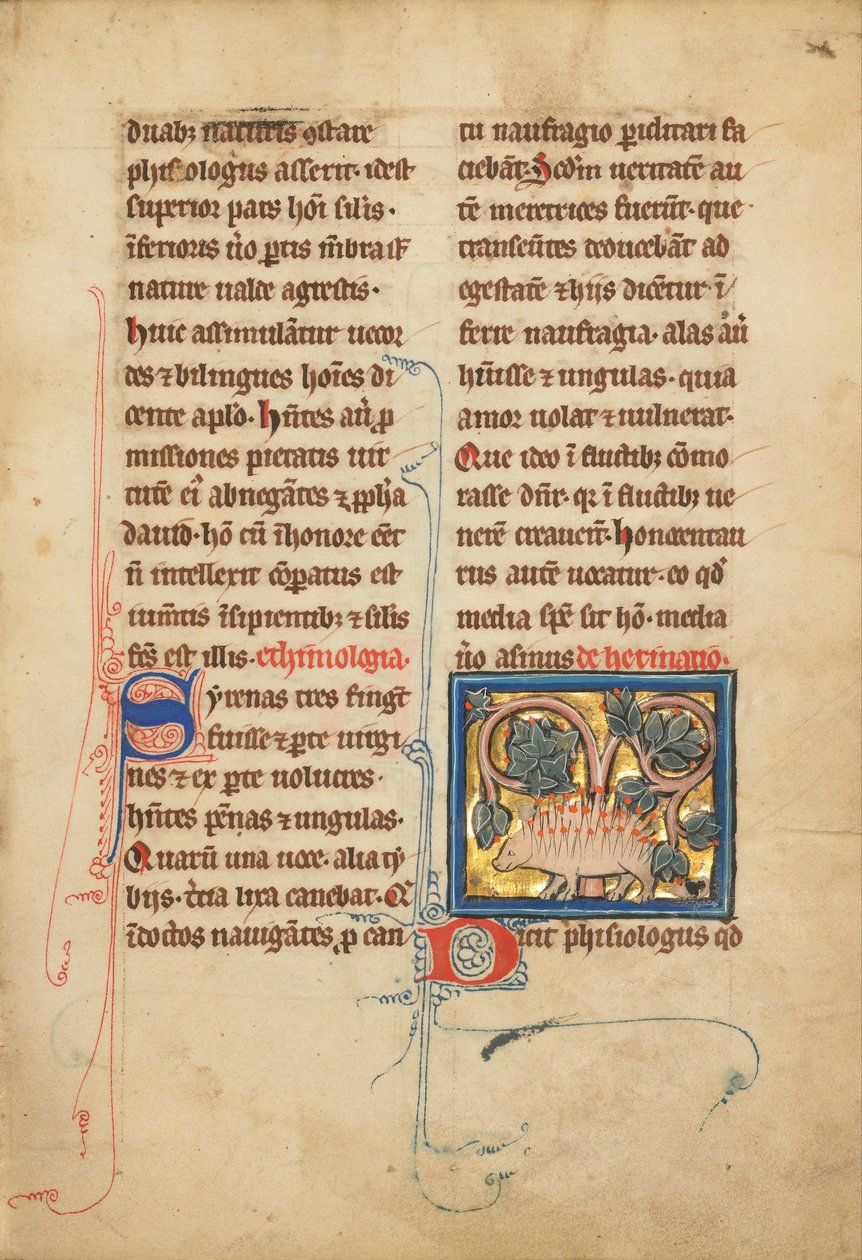 duabꝫ naturis ꝯstare
phisiologus asserit· idest
superior pars hōi silis·
īferioris ů̄o ꝑtis m̄bra sꝭ
nature ualde agrestis·
huic assimulāt̄ur uecor
des ⁊ bilingues hoı̄es di
cente apl̄o· hn̄tes aů̄ ꝓ
missiones pietatis uir
tutē ei᷒ abnegātes ⁊ ꝓph̄a
dauid· hō cū ī honore eēt
n̄ intellexit ꝯ̄ꝑatus est
ium̄tis īsipientibꝫ ⁊ silis
fcs̄ est illis· ethimologia·
Syrenas tres fingūt
fuisse ⁊ ꝑte uirgi
nes ⁊ ex ꝑte uolucres·
hn̄tes pēnas ⁊ ungulas·
Quarū una uoce· alia ty
bijs· t̄cia lira canebat· Q̄
īdoctos nauigātes ꝑ can
tu naufragio ꝑiclitari fa
ciebāt· Scd̄m ueritatē au
tē meretrices fuerūt· que
transeūtes deducebāt ad
egestatē ⁊ hijs dicēt̄ur ī
ferre naufragia· alas aū
hūisse ⁊ ungulas· quia
amor uolat ⁊ uulnerat·
Que ideo ī fluctibꝫ cōmo
rasse dn̄r· qr̄ ī fluctibꝫ ue
nerē creauerūt· honocentau
rus autē uocatur· eo qd̄
media spē sit hō· media
ů̄o asinus de herinatio·
Dicit phisiologus qd̄